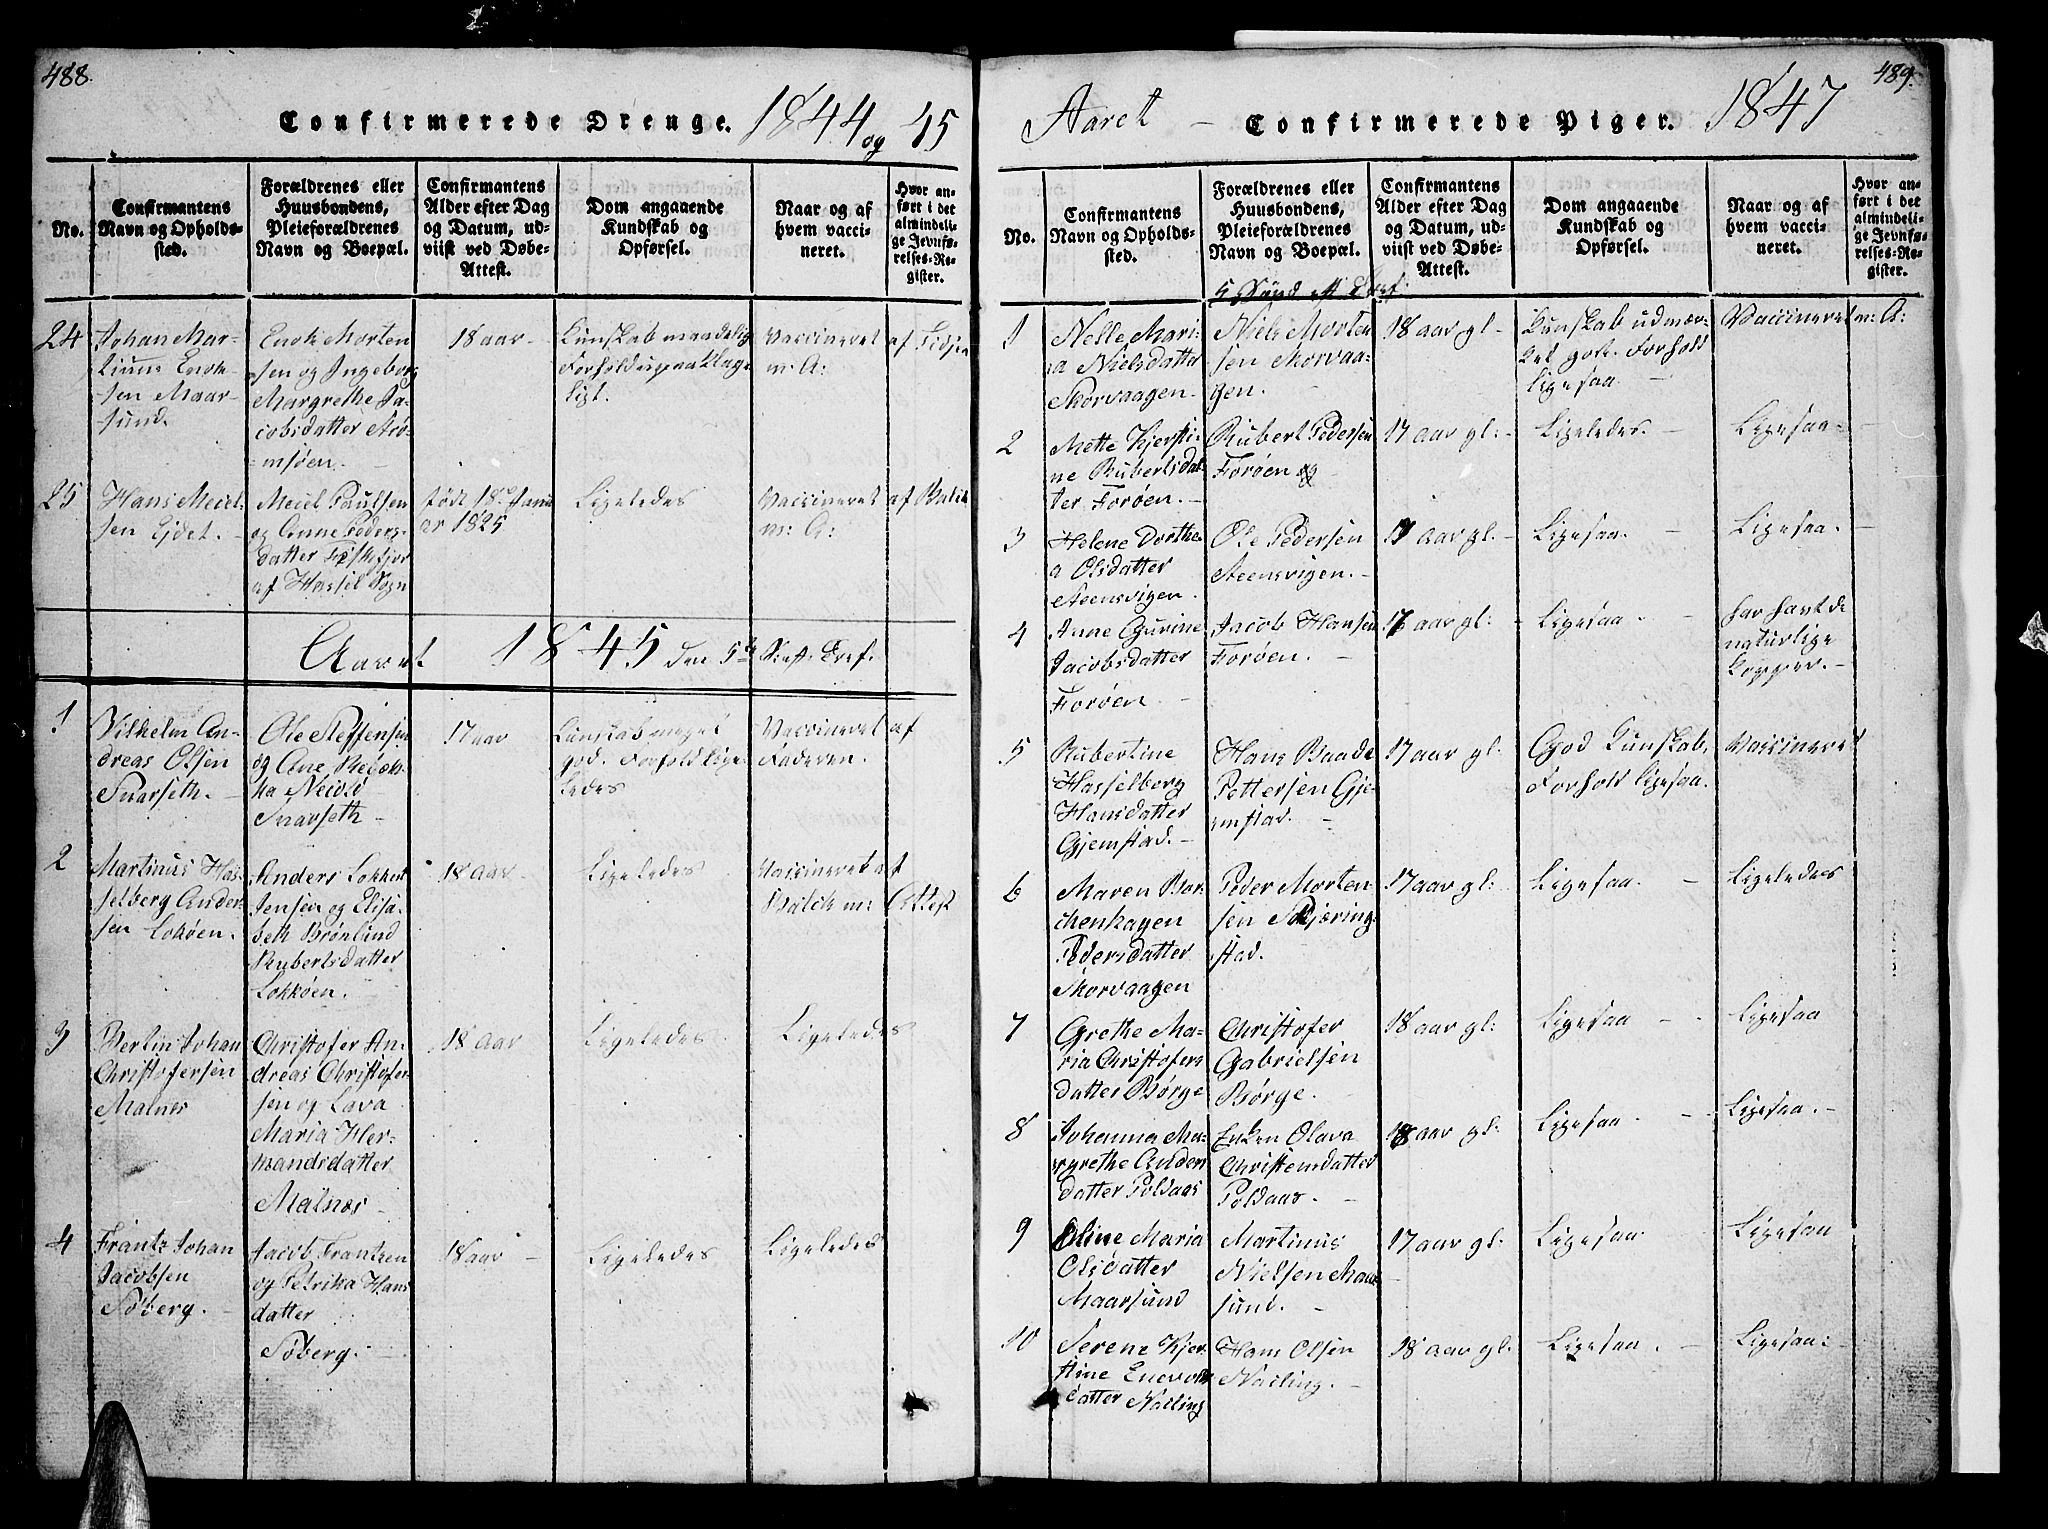 488.
Confirmerede Drenge. 1844 og 45
No.
Confirmantens
Navn og Opholds-
sted.
Forældrenes eller
Huusbondens,
Pleieforældrenes
Navn og Boepæl.
Confirmantens
Alder efter Dag
og Datum, ud-
viist ved Døbe-
Attest.
Dom angaaende
Kundskab og
Opførsel.
Naar og af
hvem vacci-
neret.
Hvor an-
ført i det
almindeli-
ge Jevnfø-
relses-Re-
gister.
24
Johan Mar-
Enok-
sen Maar-
sund.
Enok Morten
sen og Ingeborg
Margrethe Ja-
cobsdatter
18 aar -
Kunskab maadelig
Forhold upaaklage
ligt.
Vaccineret af
m: A:
25
Hans Mecel-
sen Eidet. -
Mecel Paulsen
og Anne Peders-
datter Fiskefjor
af Hassel Sogn
født 18de Janu
ar 1825
Ligeledes
Vaccineret af Balch
m: A:
Aaret 1845 den 5te
1
Vilhelm An-
dreas Olsen
Snarseth. -
Ole Steffensen
og Ane Rebek-
ka
Snarseth -
17 aar
Kunskab meget
god. Forhold lige-
ledes
Vaccineret af
Faderen.
2
Martinus Has-
selberg Ander-
sen Lokøen.
Anders Lokkert
Jensen og Elisa-
beth Brønlund
Rubertsdatter
Lokkøen.
18 aar -
Ligeledes
Vaccineret af
Balch m: Attest
3
Johan
Christofersen
Malnes
Christofer An-
dreas Christofer-
sen og Lava
Maria Her-
mandsdatter
Malnæs -
18 aar
Ligeledes
Ligeledes
4
Frantz Johan
Jacobsen
Søberg. -
Jacob Frantzen
og Petrika Hans
datter
Søberg. -
18 aar -
Ligeledes
Ligeledes
489.
Aaret - Confirmerede Piger. 1847
No.
Confirmantens
Navn og Opholds-
sted.
Forældrenes eller
Huusbondens,
Pleieforældrenes
Navn og Boepæl.
Confirmantens
Alder efter Dag
og Datum, ud-
viist ved Døbe-
Attest.
Dom angaaende
Kundskab og
Opførsel.
Naar og af
hvem vacci-
neret.
Hvor an-
ført i det
almindeli-
ge Jevnfø-
relses-Re-
gister.
5 Sønd eft Tref:
1
Nelle Mari-
a Nielsdatter
Skorvaagen -
Niels Morten
sen Skorvaa-
gen.
18 aar gl -
Kunskab udmær-
ket god. Forhold
ligesaa -
Vaccineret m: A:
2
Mette Kjersti-
ne Rubertsdat-
ter Forøen. -
Rubert Pedersen
Forøen
17 aar gl: -
Ligeledes. -
Ligesaa -
3
Helene Dorthe-
a Olsdatter
Steensvigen.
Ole Pedersen
Steensvigen. -
17 aar gl. -
Ligesaa. -
Ligesaa. -
4
Anne Gurine
Jacobsdatter
Forøen -
Jacob Hansen
Forøen. -
aar gl: -
Ligesaa. -
har havt de
naturlige
kopper. -
5
Rubertine
Hasselberg
Hansdatter
Gjemstad. -
Hans Baade
Pettersen Gje-
mstad. -
17 aar gl:
God Kunskab,
Forhold ligesaa.
Vaccineret
6
Maren Bor-
chenhagen
Pedersdatter
Skorvaagen
Peder Morten
sen Skjæring-
stad.
17 aar gl:
Ligesaa. -
Ligeledes
7
Grethe Ma-
ria Christofers
datter Børge
Christofer
Gabrielsen
Børge.
18 aar gl:
Ligesaa -
Ligesaa
8
Johanna Ma-
rgrethe Anders
datter Poldaas
Enken Olava
Christensdatter
Poldaas. -
18 aar gl:
Ligesaa. -
Ligesaa. -
9
Oline Maria
Olsdatter
Maarsund
Martinus
Nielsen Maar
sund. -
17 aar gl: -
Ligesaa
Ligesaa
10
Serene Kjer-
stine Enevolds
datter Natling
Hans Olsen
Natling. -
18 aar gl.
Ligesaa. -
Ligesaa: -